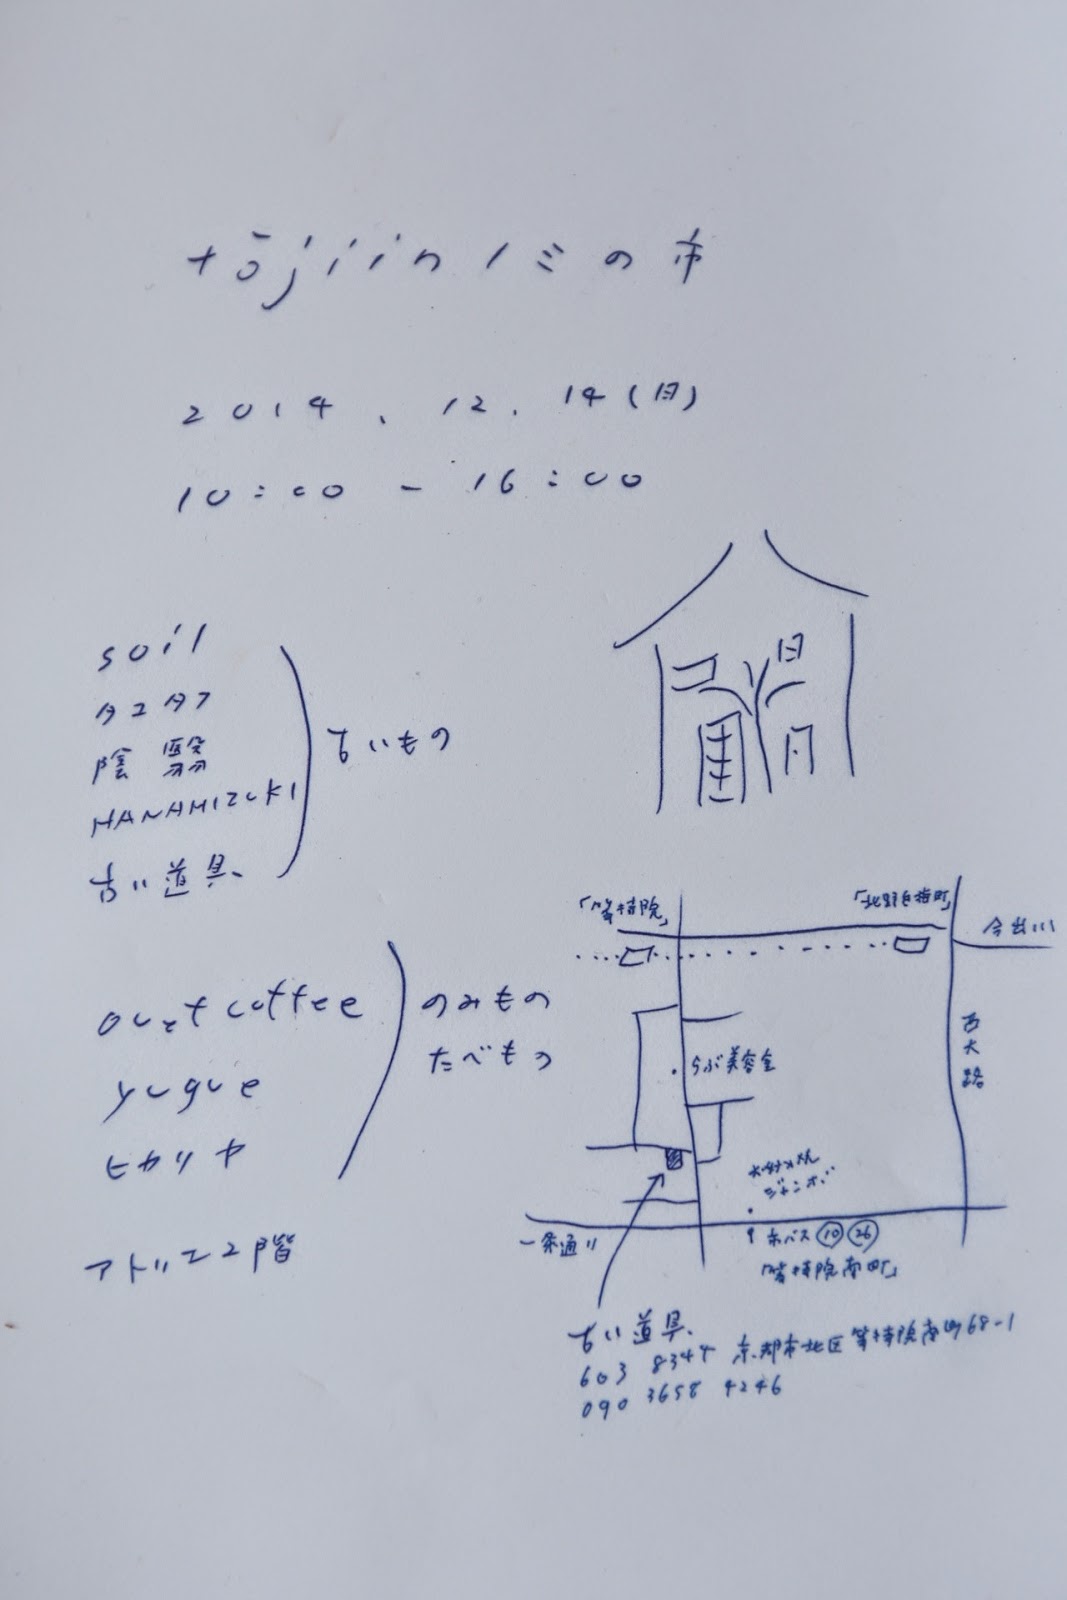 tōjiinノミの市
2014.12.14(日)
10:00-16:00
soil
タユタフ
陰翳
HANAMIZUKI
古い道具
古いもの
ouet coffee
yugue
ヒカリヤ
のみもの
たべもの
アトリエ2階
「等持院」
「北野白梅町」
今出川
西大路
らぶ美容室
お好み焼
ジャンボ
一条通り
市バス 10 26
「等持院南町」
古い道具
603 8344 京都市北区等持院南町68-1
090 3658 4246